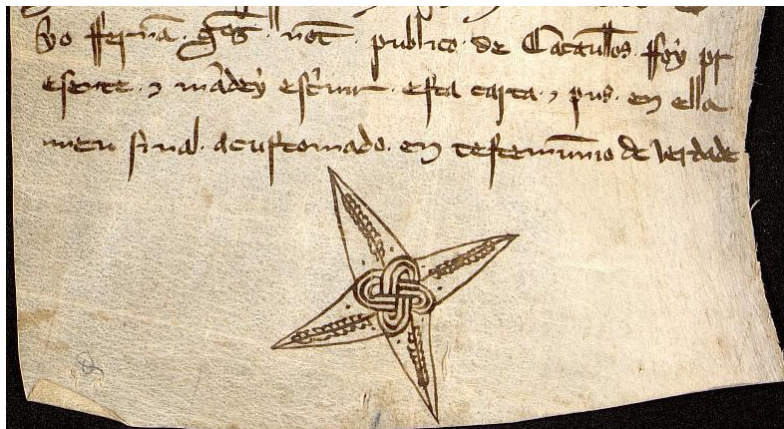 yo ffernã. gõs not̃. publico. de Cacauĩlos. ffoy pr
esente. ⁊ mãdey esc̃uir. esta carta. ⁊ pus. en ella
meu sinal. acustomado. en testemũnio de verdade